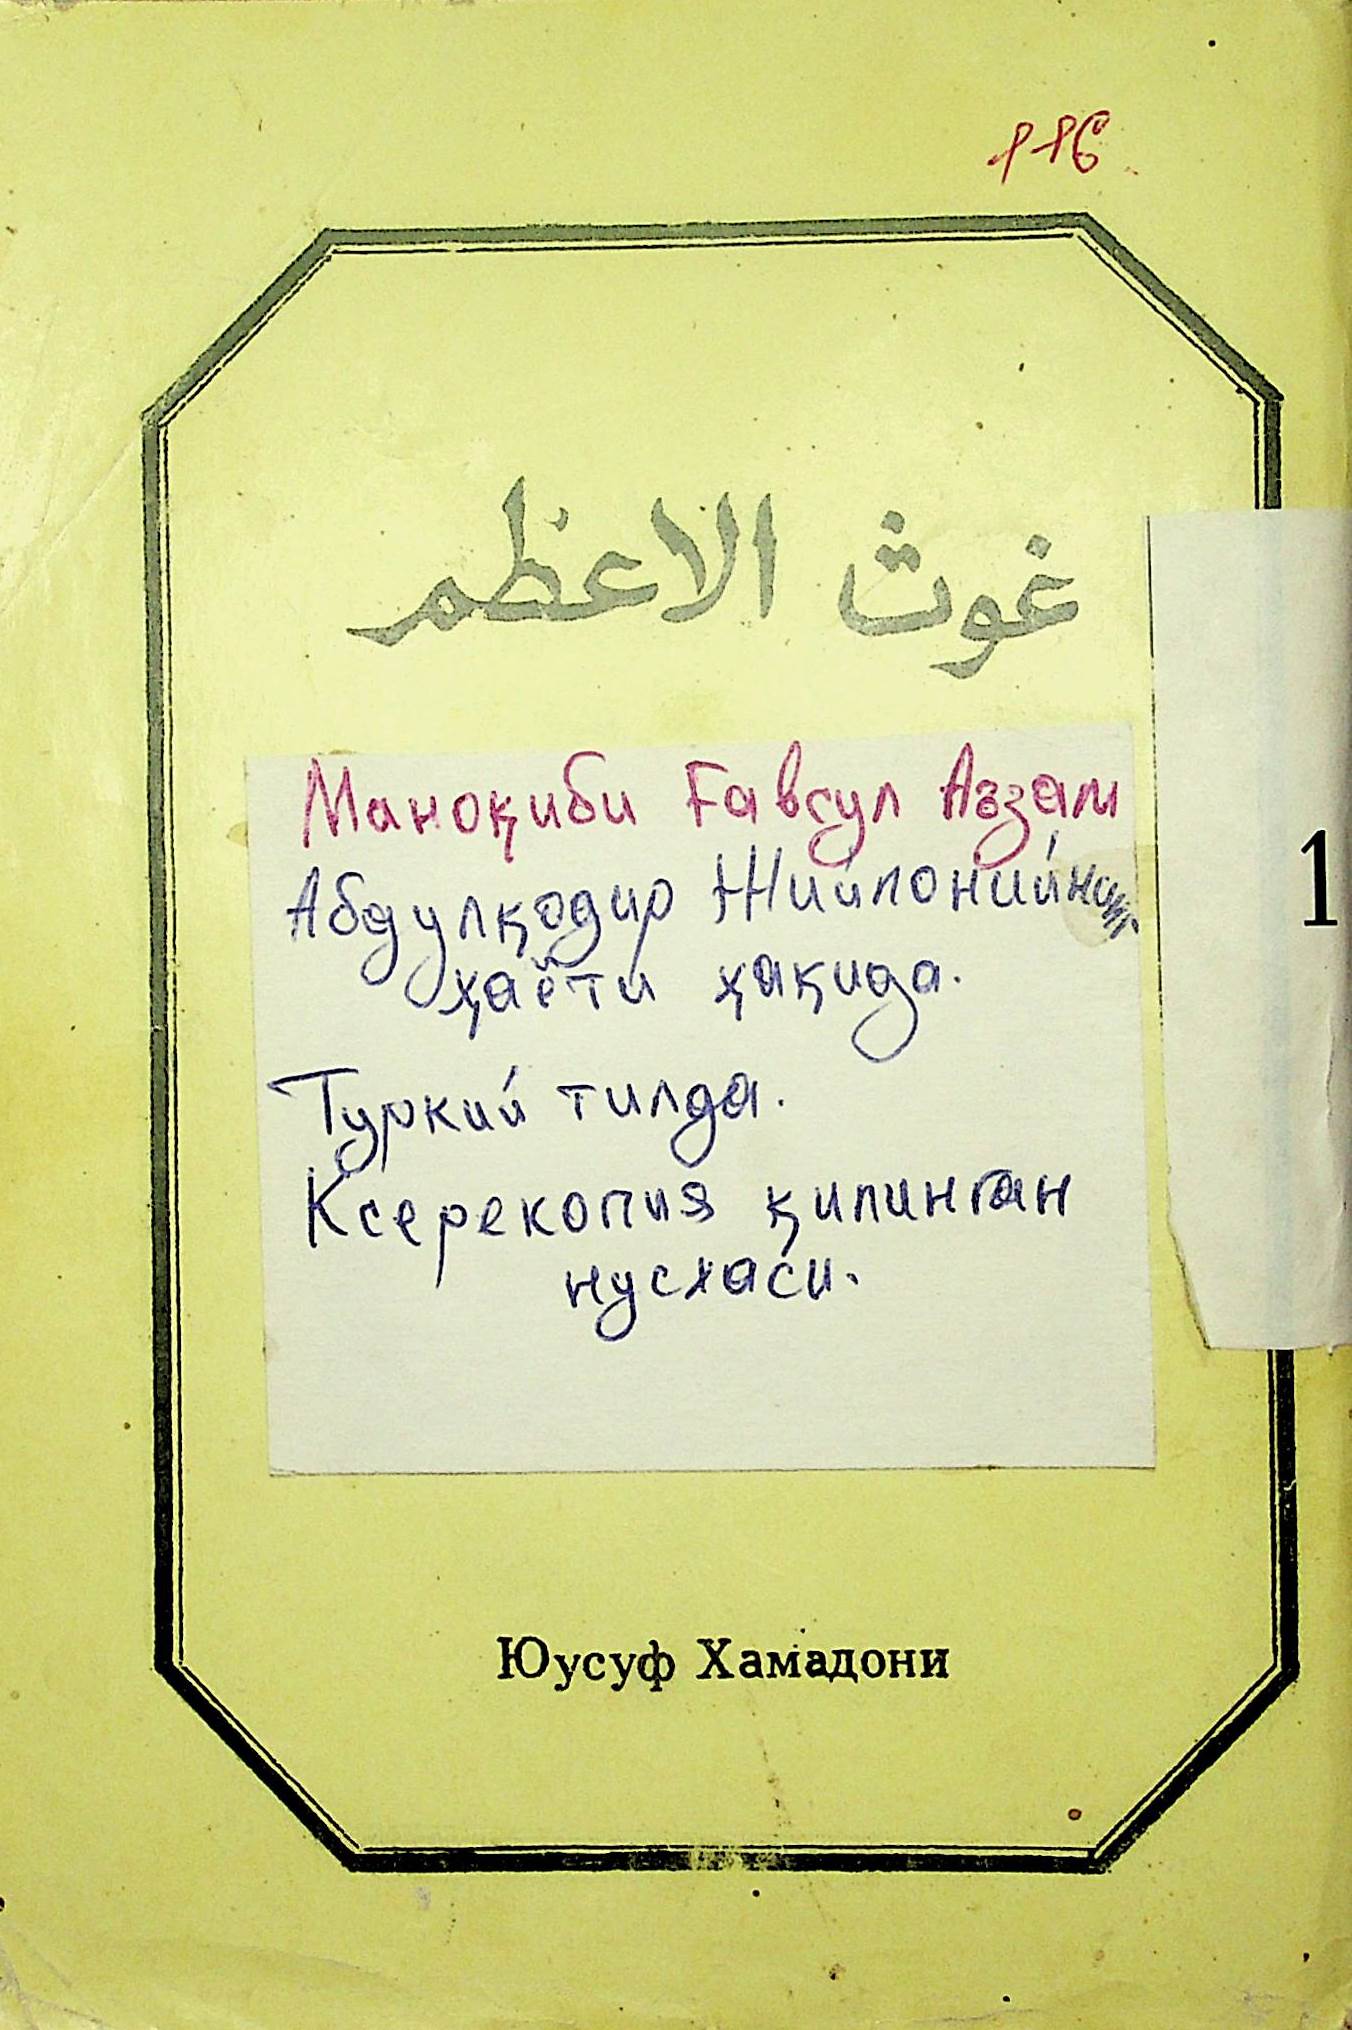 116
غوث الاعظم
Маноқиби Ғавсул Аъзам
Абдулқодир Жийлонийнинг
ҳаёти ҳақида.
1
Туркий тилда.
Ксерекопия қилинган
нусхаси.
Юусуф Хамадони